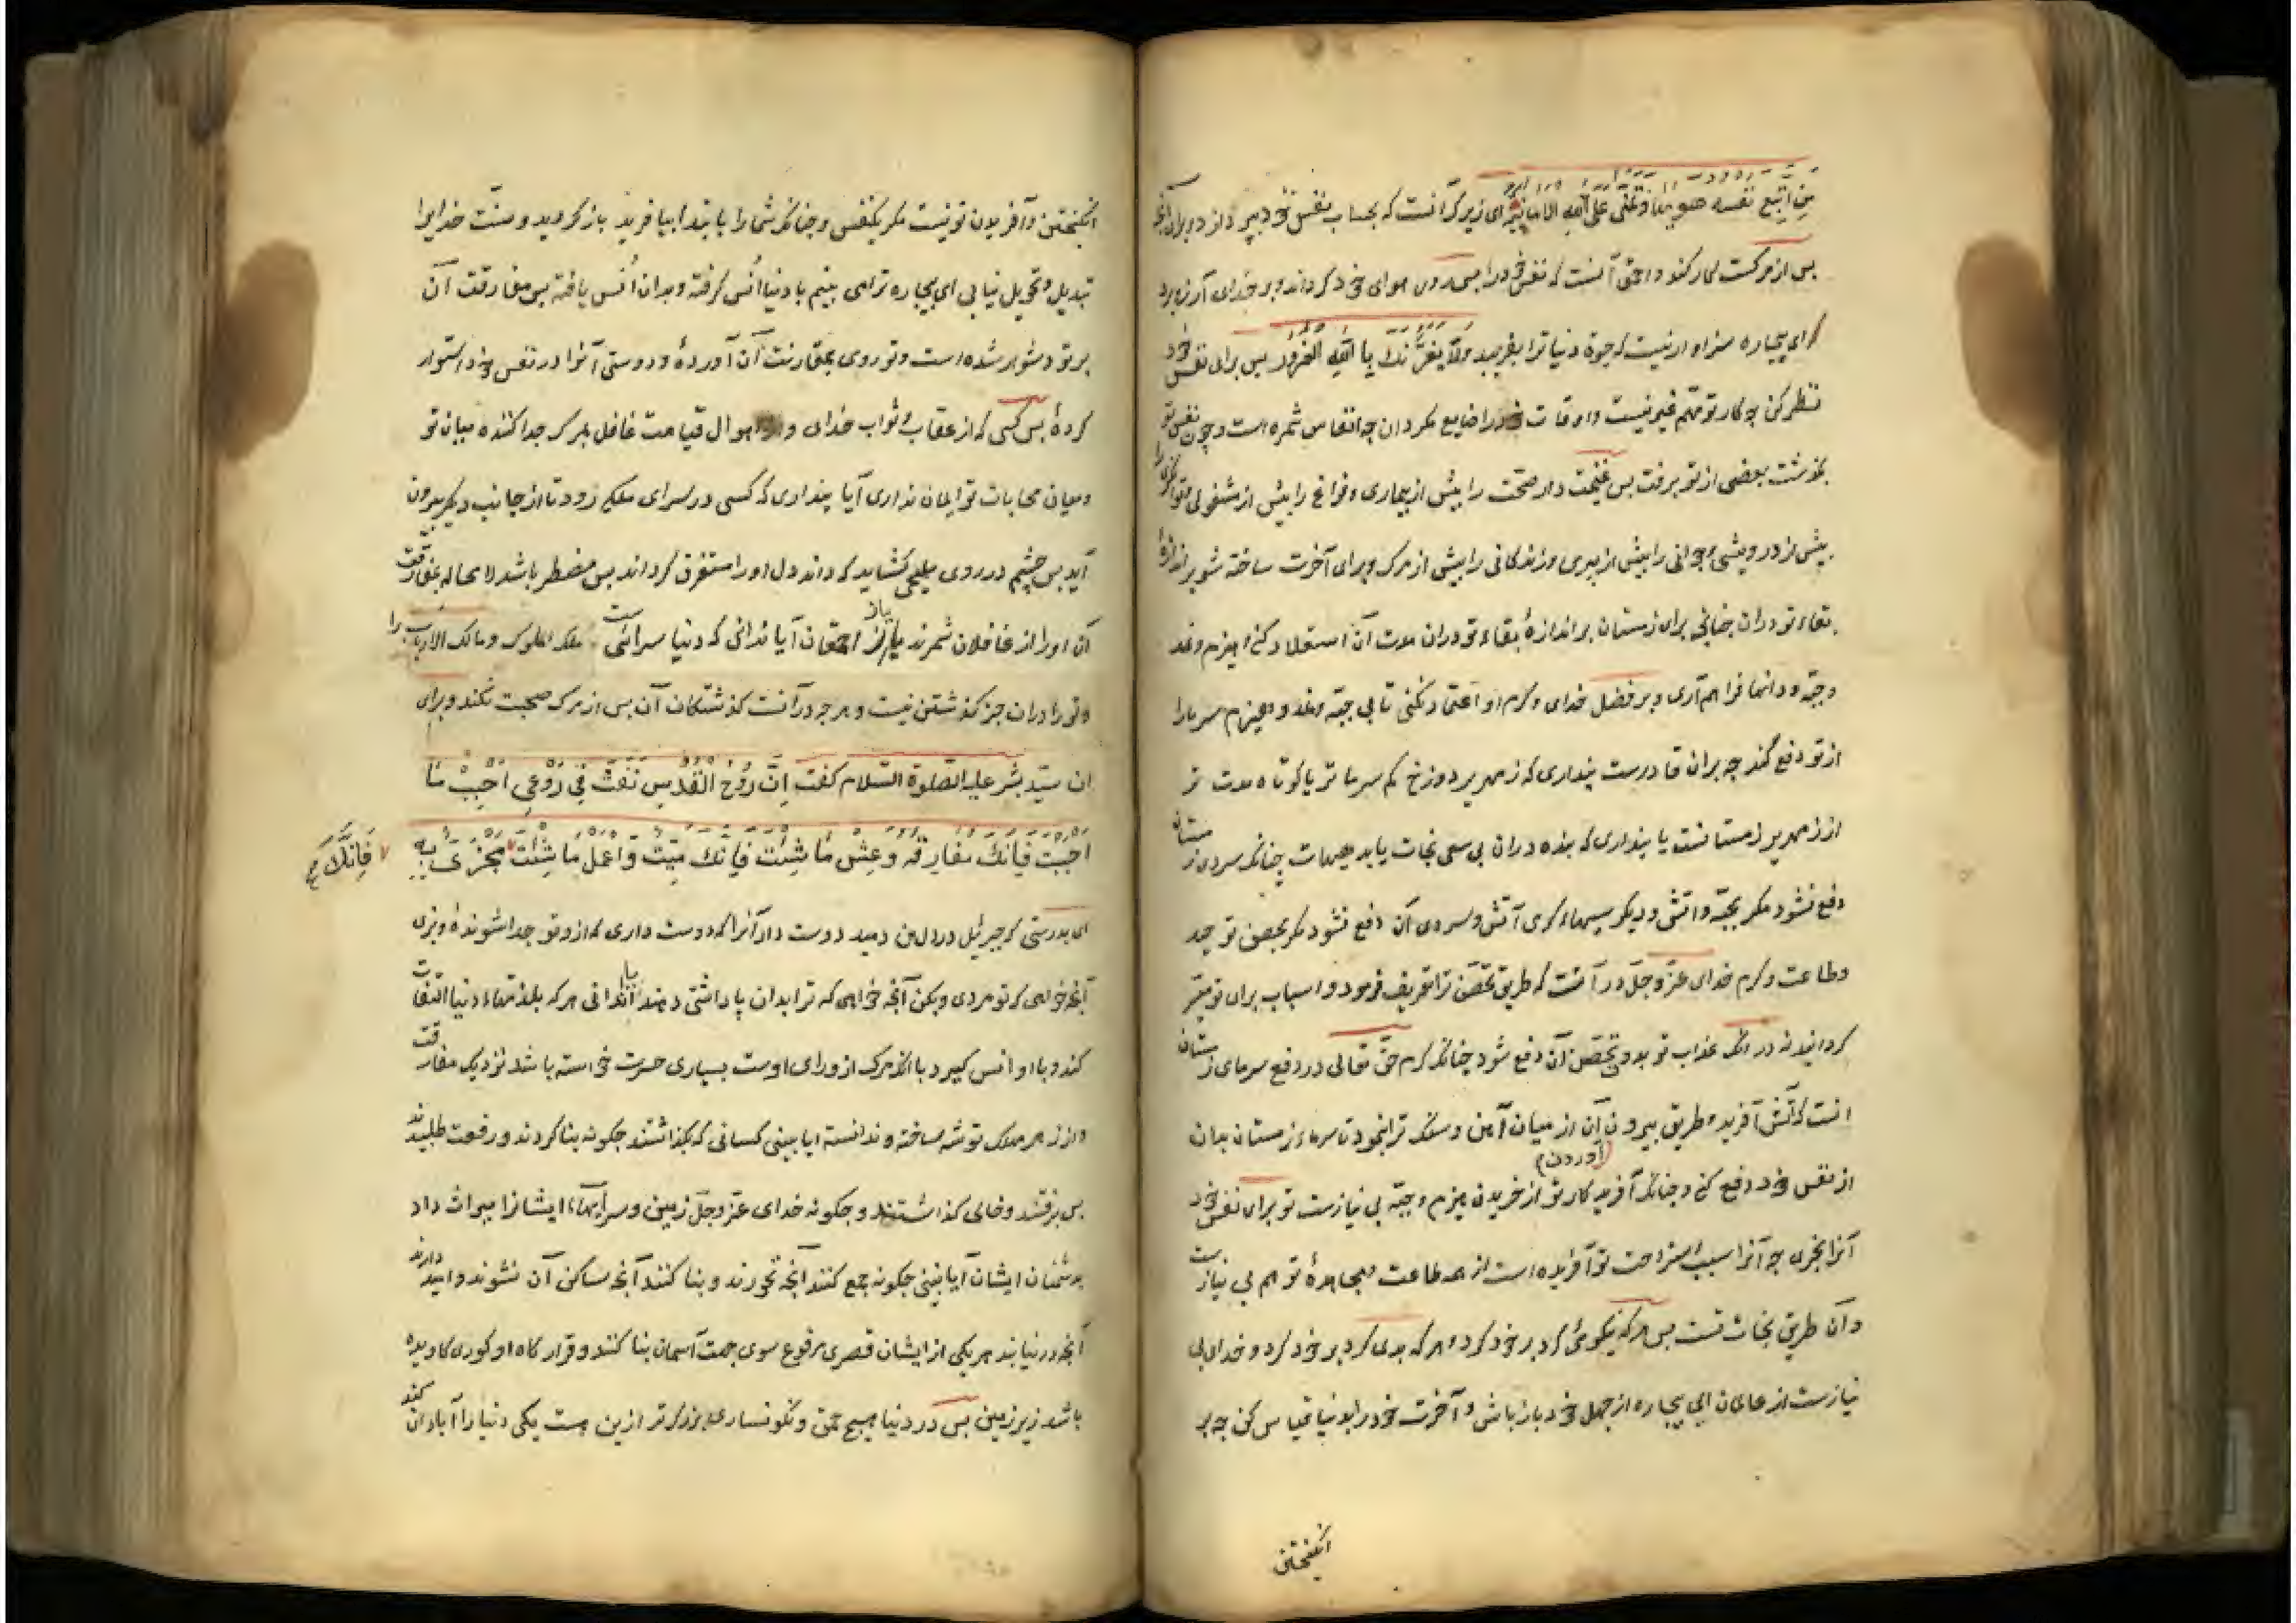 من اتبع نفسه هویها و تمنی علی الله الامانیه ای زیرک آنست که بحساب نفس خود پردازد و برای آنچه
پس از مرکست کار کند و احمق آنست که نفس خود را پس رو هوای خود کرداند و بر خدای آرزو برد
ای بیچاره سزاوار نیست که حیوة دنیا ترا بفریبد ولا یغرنک بالله الغرور پس برای نفس خود
نظر کن چه کار تو مهم غیر نیست و اوقات خود را ضایع مکردان چه انفاس شمره است و چون نفس تو
بگذشت بعضی از تو برفت پس غنیمت دار صحت را پیش از بیماری و فراغ را پیش از مشغولی و توانگری را
پیش از درویشی و جوانی را پیش از پیری و زندکانی را پیش از مرک و برای آخرت ساخته شو بر اندازۀ
بقاء تو دران چنانچه برای زمستان بر اندازۀ بقاء تو دران مدت آن استعداد کنی هیزم و نمد
و جبه و مانند فراهم آری و بر فضل خدای و کرم او اعتماد نکنی تا بی جبه و نمد و هیزم سرما را
از تو دفع کند چه بران قادرست پنداری که زمهریر دوزخ کم سرما تر یا کوتاه مدت تر
از زمهریر زمستانست یا پنداری که بنده دران بی سعی نجات یابد هیهات چنانکه سردی زمستان
دفع نشود مکر بجبه و آتش و دیکر سببها، کرمی آتش و سردی آن دفع نشود مکر بحصن توحید
و طاعت و کرم خدای عز و جل در آنست که طریق تحصن ترا تعریف فرمود و اسباب برای تو میسر
کردانید نه در انکه عذاب تو بدو تحصن آن دفع شود چنانکه کرم حق تعالی در دفع سرمای زمستان
انست که آتش آفرید و طریق بیرون (آوردن) آن از میان آهن و سنک ترا نمود تا سرماء زمستان بدان
از نفس خود دفع کنی و چنانکه آفریدکار تو از خریدن هیزم و جبه بی نیازست تو برای نفس خود
آنرا بخری چه آنرا سبب استراحت تو آفریده است از همه طاعت و مجاهدۀ تو هم بی نیازست
و آن طریق نجات تست پس هرکه نیکوئی کرد بر خود کرد و هر که بدی کرد بر خود کرد و خدای بی
نیازست از عالمان ای بیچاره از جهل خود باز باش و آخرت خود را بدنیا قیاس کن چه بر
انکیختن
انکیختن و آفریدن تو نیست مکر یکنفس و چنانکه شما را بابتدا بیافرید باز کردید و سنت خدایرا
تبدیل و تحویل نیابی ای بیچاره ترا می بینم با دنیا انس کرفته و بدان انس یافته پس مفارقت آن
بر تو دشوار شده است و تو روی بمقارنت آن آوردۀ و دوستی آنرا در نفس خود استوار
کردۀ پس کسی که از عقاب و ثواب خدای و اهوال قیامت غافل بمرک جدا کننده میان تو
و میان محابات تو ایمان نداری آیا پنداری که کسی در سرای ملکی رود تا از جانب دیکر بیرون
آید پس چشم در روی ملیحی کشاید که داند دل او را مستغرق کرداند پس مضطر باشد لا محاله بمفارقت
آن او را از غافلان شمرند یا از احمقان آیا ندانی که دنیا سرائیست ملک الملوک و مالک الارباب را
و تو را دران جز کذشتن نیست و هر چه درآنست کذشتکان آن پس از مرک صحبت نکند و برای
ان سید بشر علیه الصلوة السلام کفت ان روح القدس نفث فی روعی احبب ما
احببت فانک مفارقه وعش ما شئت فانک میت واعمل ما شئت فانک مجزی به
ای بدرستی که جبرئیل در دل من دمید دوست دار آنرا که دوست داری که ازو تو جدا شوندۀ و بزی
آنچه خواهی که تو مردی و بکن آنچه خواهی که ترا بدان پاداشتی دهند آیا ندانی هر که بلذتهاء دنیا التفات
کند و با او انس کیرد با انکه مرک از ورای اوست بسیاری حسرت خواسته باشد نزدیک مفارقت
و از زهر مهلک توشه ساخته و ندانسته ایا بینی کسانی که بکذاشتند چکونه بنا کردند و رفعت طلبیدند
پس برفتند و خالی کذاشتند و چکونه خدای عز و جل زمین و سرایها، ایشانرا میراث داد
بدشمنان ایشان آیا نبینی چکونه جمع کنند آنچه نخورند و بنا کنند آنچه ساکن آن نشوند و امید دارند
آنچه در نیابند هر یکی از ایشان قصری مرفوع سوی جهت آسمان بنا کند و قرار کاه او کوری کاویده
باشد زیر زمین پس در دنیا هیچ حمق و نکونساری بزرکتر ازین هست یکی دنیا را آبادان کند